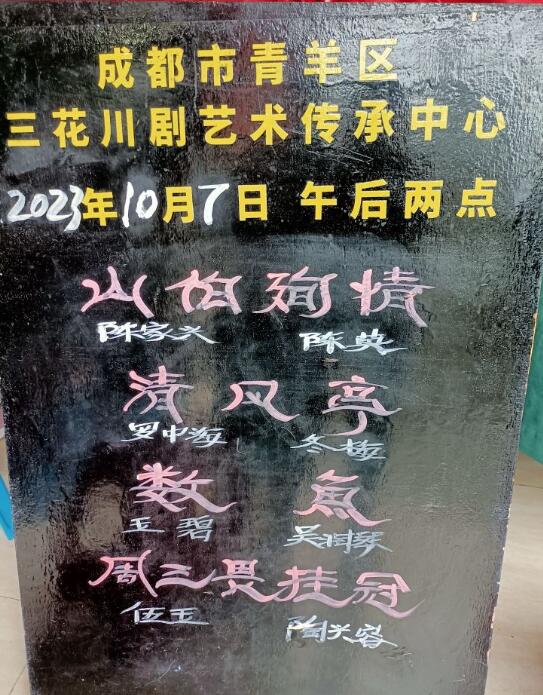 成都市青羊区
三花川剧艺术传承中心
2023年10月7日 午后两点
山伯殉情
陈家兴 陈英
清风亭
罗中海 冬梅
数鱼
玉碧 吴润琴
周三畏挂冠
伍玉 陶兴容